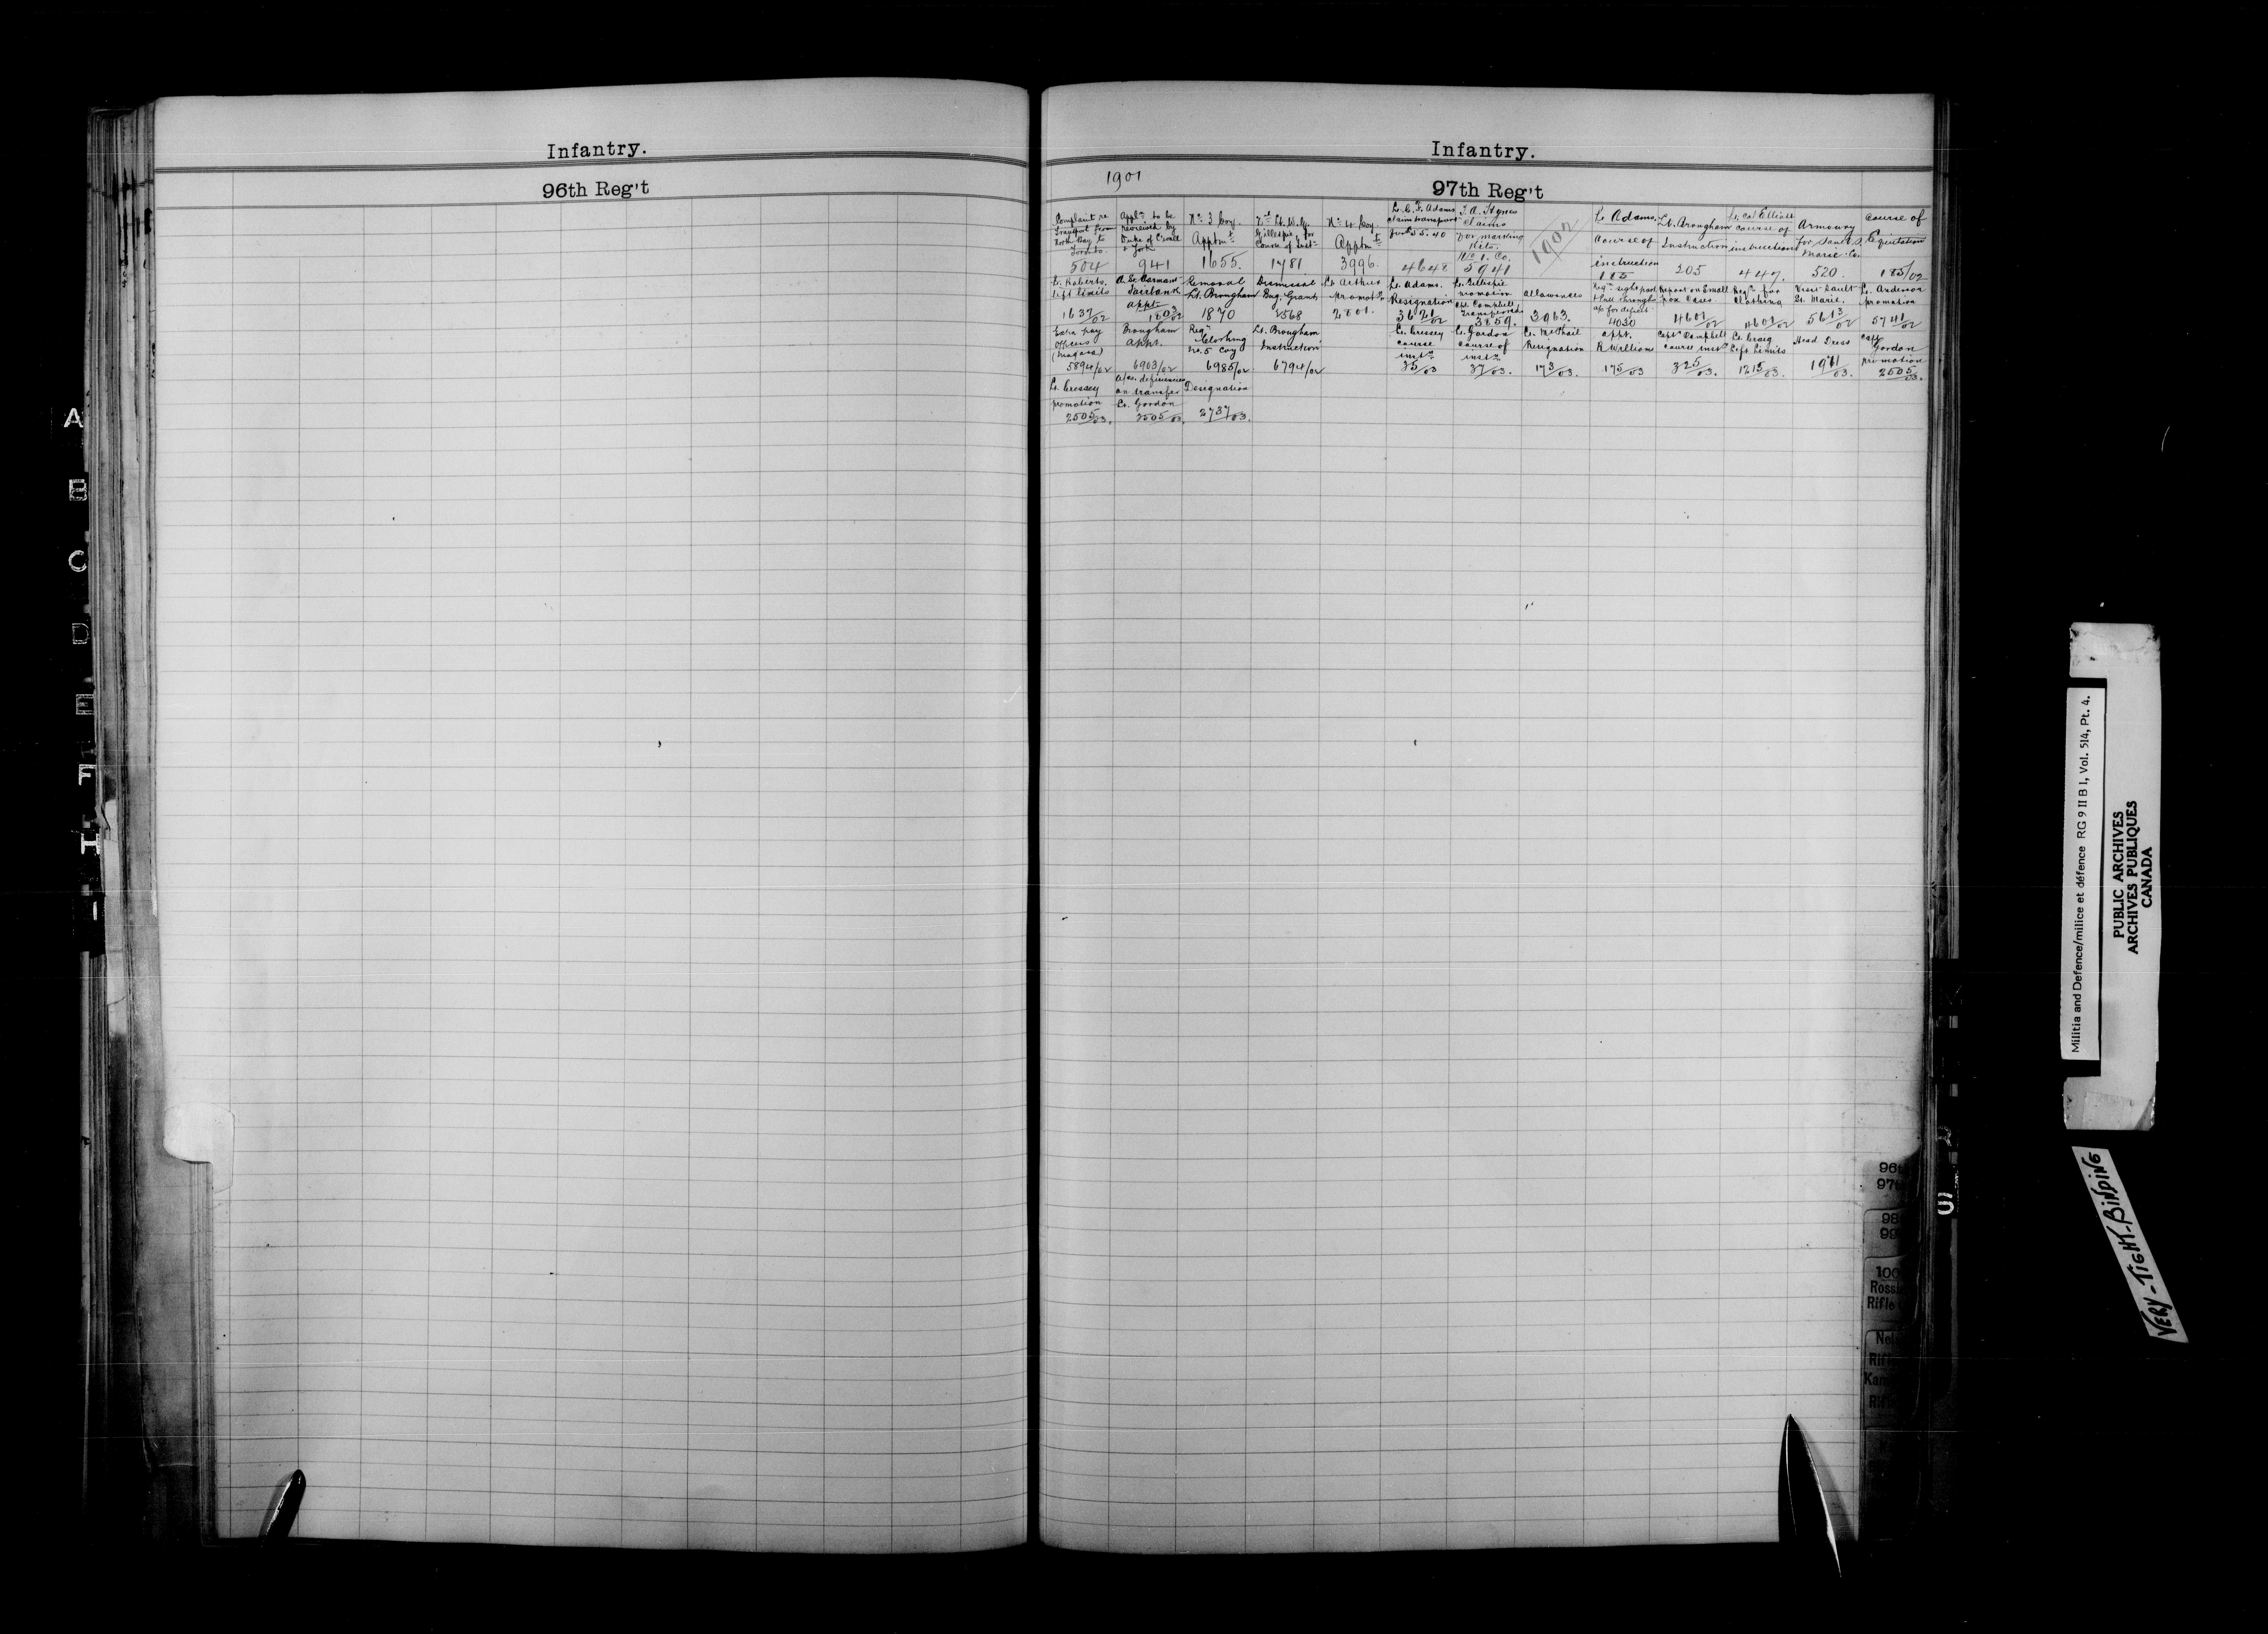 Infantry.
96th Reg't
Infantry.
1901
97th Reg't
Complaint re
Transport from
North Bay to
Toronto.
504
Appln to be
received by
Duke of C'wall
& York
941
No 3 Coy.
Apptmt
1655.
2nd Lt. W. G.
Gillespie for
Course of Instn
1781
No 4 Coy.
Apptmt
3996.
Lt. C. F. Adams
claim transport
for $5.40
4648
J. A. Hynes
claims
for marking
Kits.
No 1. Co.
5941
1902
Lt. Adams.
Course of
instruction
115
Lt. Brougham
Instruction
205
Lt. Col Elliott
course of
instruction
447.
Armoury
for Sault S.
Marie. Co.
520.
Course of
Equitation
185/02
Lt. Roberts.
Left limits
1637/02
appt
1803/02
Removal
Lt. Brougham
1870
Dismissal
Bug. Grant
2568
Lt Arthur
promotn
2801.
Lt. Adams.
Resignation
3621/02
Lt. Gillespie
promotion
Capt. Campbell
transferred
3859.
Allowances
3963.
a/c for deficts
4030
Report on Small
pox Cases
4601/02
Reqn for
Clothing
4601/02
Visit Sault
St. Marie.
5613/02
Lt. Anderson
promotion
5741/02
Extra pay
Officers
(Niagara)
5894/02
Brougham
appt.
6903/02
Reqn
Clothing
No. 5 Coy
6985/02
Lt. Brougham
Instruction
6794/02
Lt. Cressey
course
instn
35/03
Lt. Gordon
course of
instn
37/03.
Lt. McPhail
Resignation
173/03.
appt.
R Williams
175/03
Captn Campbell
course instn
325/03.
Lt. Craig
Left Limits
1215/03.
Head Dress
1961/03.
Capt
Gordon
promotion
2505/03.
Lt. Cressey
promotion
2505/03.
a/c. deficiencies
on transfer
Lt. Gordon
2505/03.
Designation
2737/03.
A
B
C
D
E
F
H
I
S
96t
97t
98
99
100
Ross
Rifle
Nel
Rif
Kam
Rif
Militia and Defence/milice et défence RG 9 II B 1, Vol. 514, Pt. 4.
PUBLIC ARCHIVES
ARCHIVES PUBLIQUES
CANADA
VERY-TIGHT-BINDING